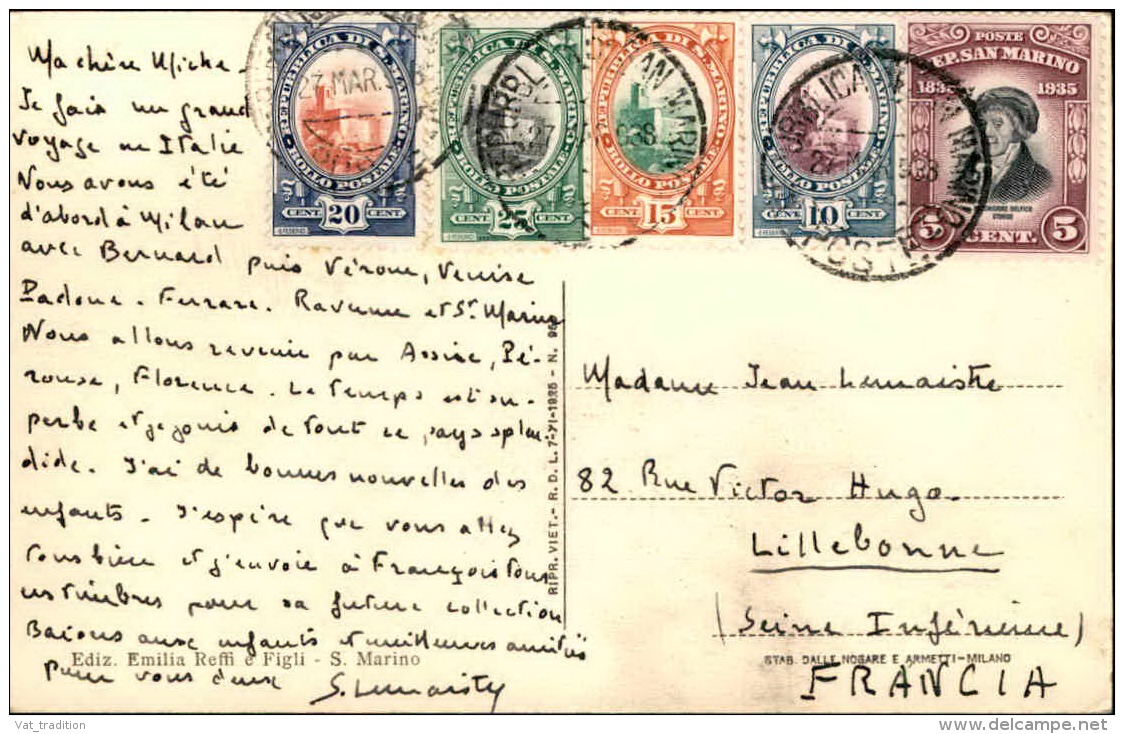 Ma chère Miche -
Je fais un grand
voyage en Italie
Nous avons été
d'abord à Milan
avec Bernard puis Vérone, Venise
Padoue - Ferrare. Ravenne et St Marin
Nous allons revenir par Assise, Pé-
rouse, Florence. Le temps est su-
perbe et je jouis de tout ce pays splen
dide. J'ai de bonnes nouvelles des
enfants - J'espère que vous allez
tous bien et j'envoie à François tous
ces timbres pour sa future collection
Baisers aux enfants et meilleures amitiés
pour vous deux S. Lemaistre
Ediz. Emilia Reffi e Figli - S. Marino
RIPR. VIET. - R. D. L. 7-XI-1925 - N. 95
REPUBBLICA DI S. MARINO
BOLLO POSTALE
CENT 20 CENT
27 MAR.
REPUBBLICA DI S. MARINO
BOLLO POSTALE
CENT 25 CENT
REPUBBLICA DI S. MARINO
BOLLO POSTALE
CENT 15 CENT
REPUBBLICA DI S. MARINO
BOLLO POSTALE
CENT 10 CENT
POSTE
REP. SAN MARINO
1835 1935
MELCHIORRE DELFICO
STORICO
5 CENT. 5
Madame Jean Lemaistre
82 Rue Victor Hugo.
Lillebonne
(Seine Inférieure)
STAB. DALLE NOGARE E ARMETTI - MILANO
FRANCIA
Vat_tradition
delcampe.net